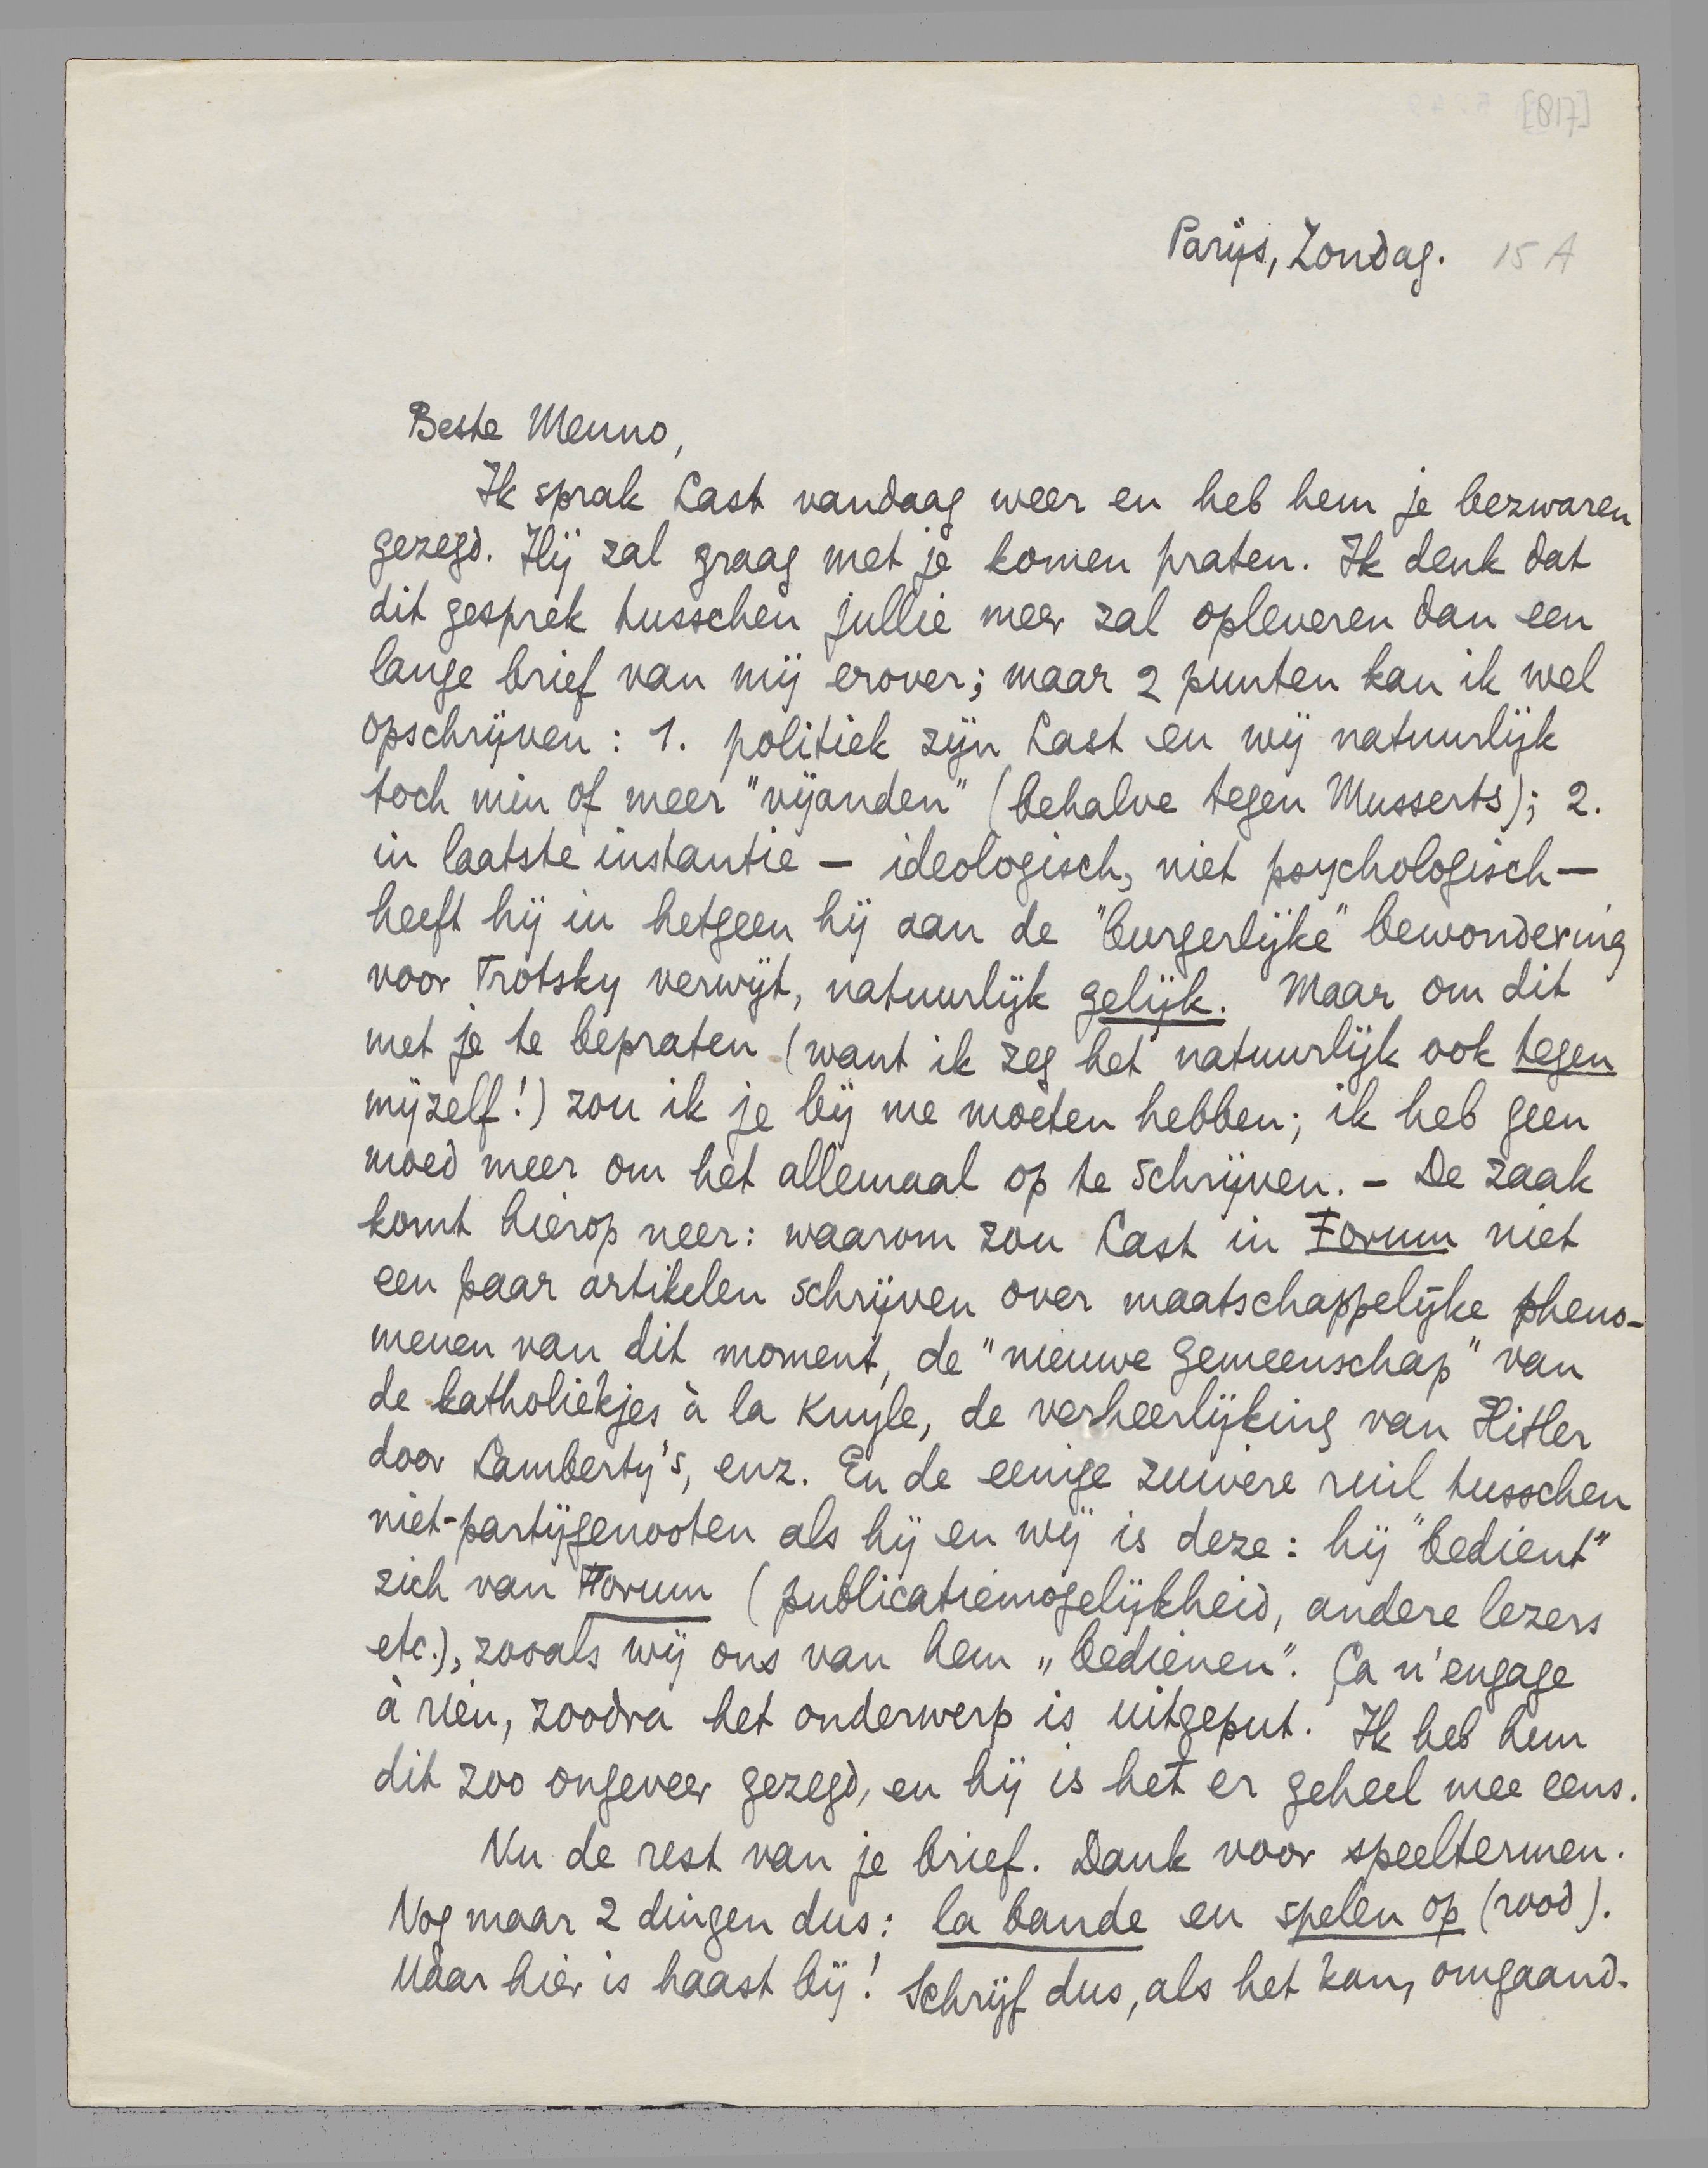 [817]
Parijs, Zondag. 15 A
Beste Menno,
Ik sprak Last vandaag weer en heb hem je bezwaren
gezegd. Hij zal graag met je komen praten. Ik denk dat
dit gesprek tusschen jullie meer zal opleveren dan een
lange brief van mij erover; maar 2 punten kan ik wel
opschrijven: 1. politiek zijn Last en wij natuurlijk
toch min of meer "vijanden" (behalve tegen Musserts); 2.
in laatste instantie – ideologisch, niet psychologisch –
heeft hij in hetgeen hij aan de "burgerlijke" bewondering
voor Trotsky verwijt, natuurlijk gelijk. Maar om dit
met je te bepraten (want ik zeg het natuurlijk ook tegen
mijzelf!) zou ik je bij me moeten hebben; ik heb geen
moed meer om het allemaal op te schrijven. – De zaak
komt hierop neer: waarom zou Last in Forum niet
een paar artikelen schrijven over maatschappelijke pheno-
menen van dit moment, de "nieuwe gemeenschap" van
de katholiekjes à la Kuyle, de verheerlijking van Hitler
door Lamberty's, enz. En de eenige zuivere ruil tusschen
niet-partijgenooten als hij en wij is deze: hij "bedient"
zich van Forum (publicatiemogelijkheid, andere lezers
etc.), zooals wij ons van hem „bedienen". Ça n'engage
à rien, zoodra het onderwerp is uitgeput. Ik heb hem
dit zoo ongeveer gezegd, en hij is het er geheel mee eens.
Nu de rest van je brief. Dank voor speeltermen.
Nog maar 2 dingen dus: la bande en spelen op (rood).
Maar hier is haast bij! Schrijf dus, als het kan, omgaand.